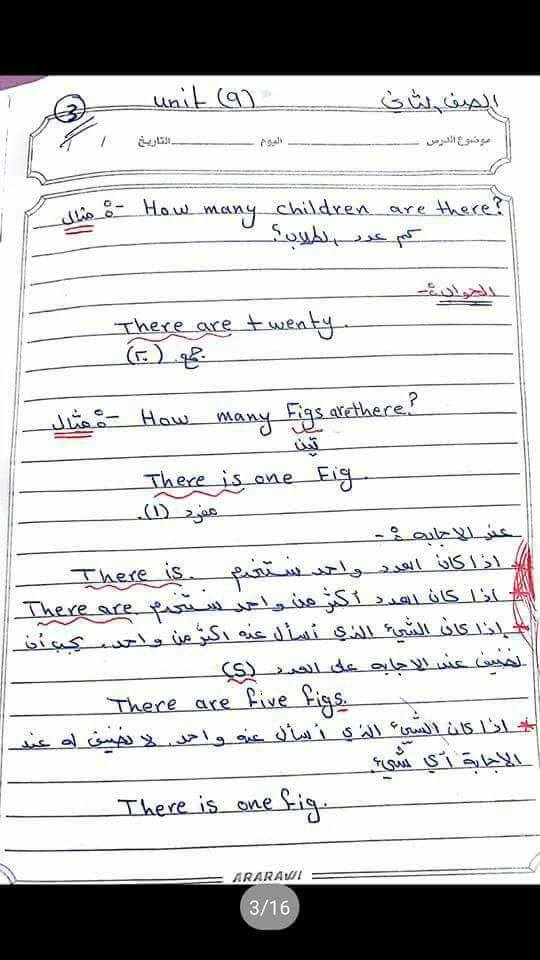 3 unit (9) الصف الثاني
موضوع الدرس اليوم التاريخ / /
مثال :- How many children are there?
كم عدد الطلاب؟
الجواب :-
There are twenty.
جمع (٢٠)
مثال :- How many Figs are there?
تين
There is one Fig.
مفرد (١).
عند الاجابه :-
* اذا كان العدد واحد نستخدم There is.
* اذا كان العدد أكثر من واحد نستخدم There are
* إذا كان الشيئ الذي أسأل عنه اكثر من واحد، يجب أن
نضيف عند الاجابه على العدد (S)
There are five figs.
* اذا كان الشيئ الذي أسأل عنه واحد لا نضيف له عند
الاجابة أي شيئ.
There is one fig.
ARARAWI
3/16